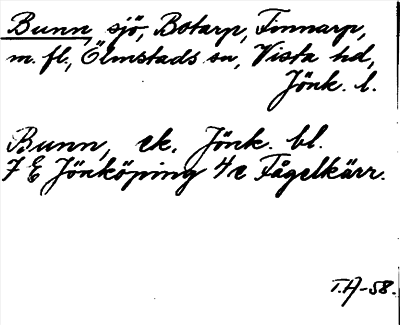 Bunn, sjö, Botarp, Finnarp,
m. fl., Ölmstads sn, Vista hd,
Jönk. l.
Bunn, ek. Jönk. bl.
7 E Jönköping 4 e Fågelkärr.
T.A-58.